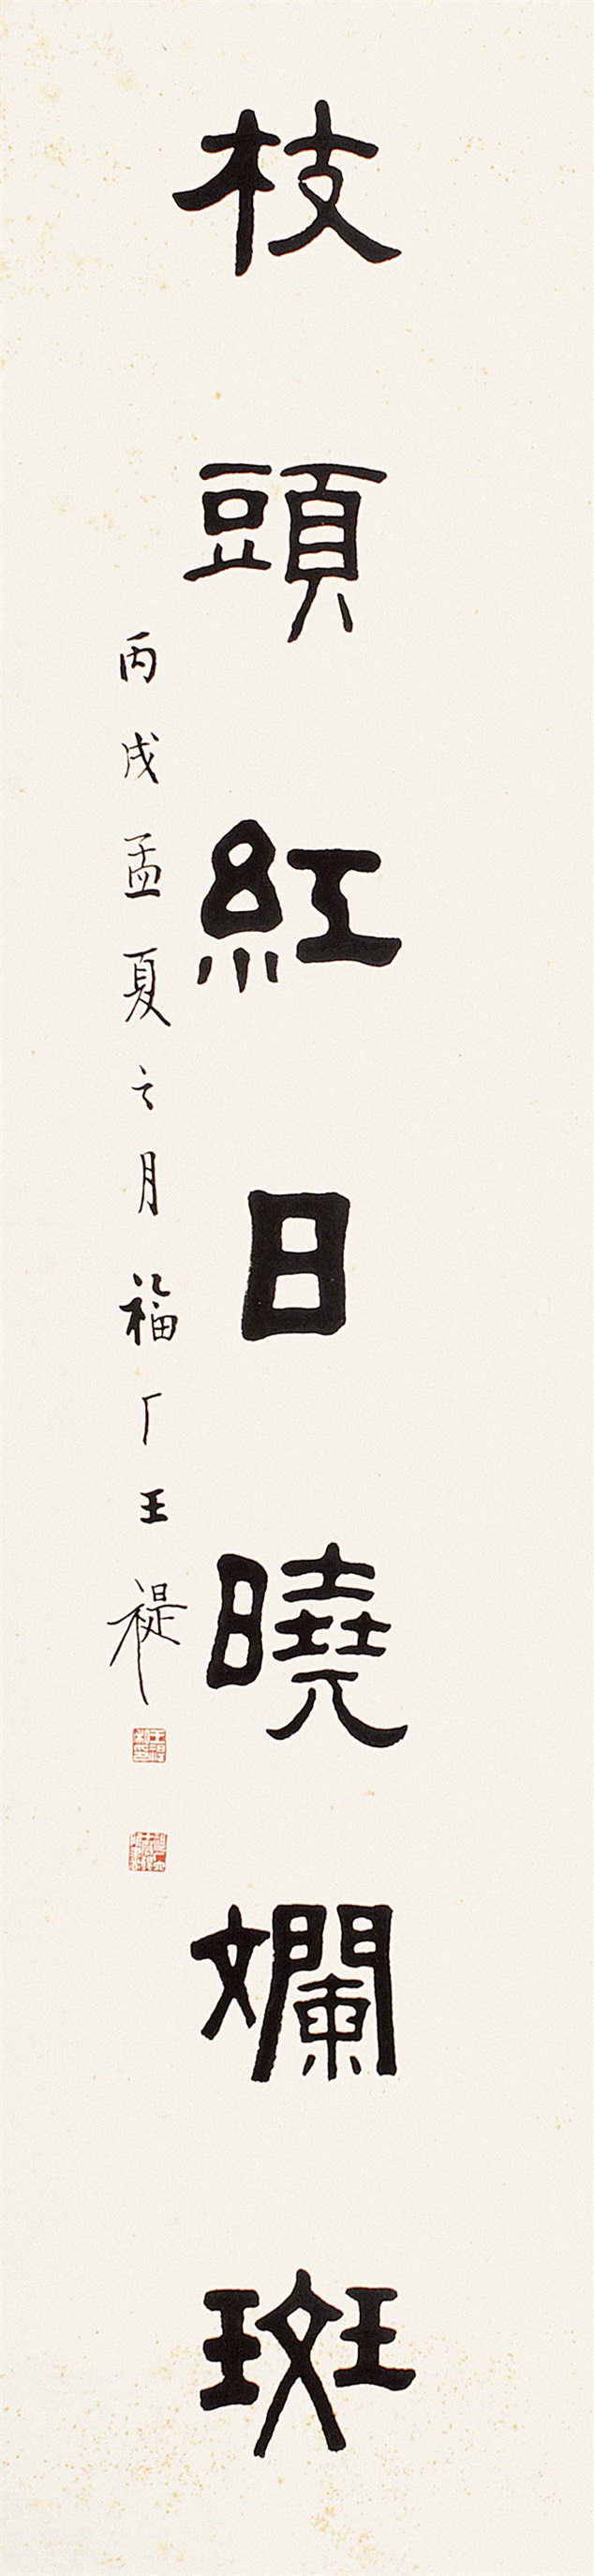 枝頭紅日曉斕斑
丙戌孟夏之月福厂王禔